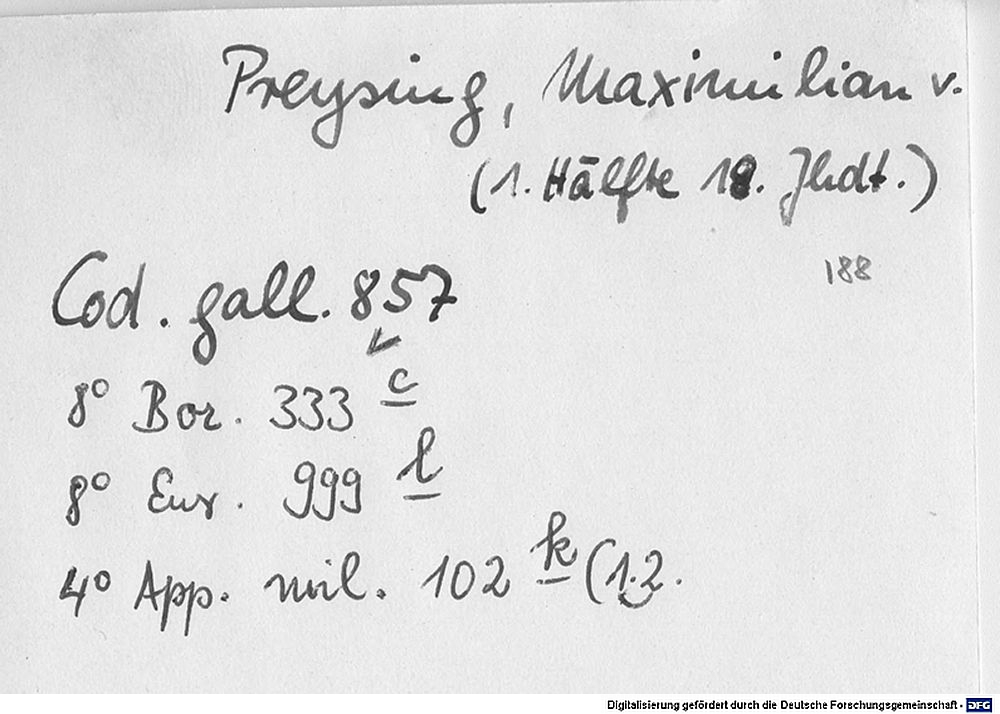 Preysing, Maximilian v.
(1. Hälfte 18. Jhdt.)
188
Cod. gall. 857
8° Bor. 333 c
8° Eur. 999 l
4° App. mil. 102 k (1.2.
Digitalisierung gefördert durch die Deutsche Forschungsgemeinschaft - DFG